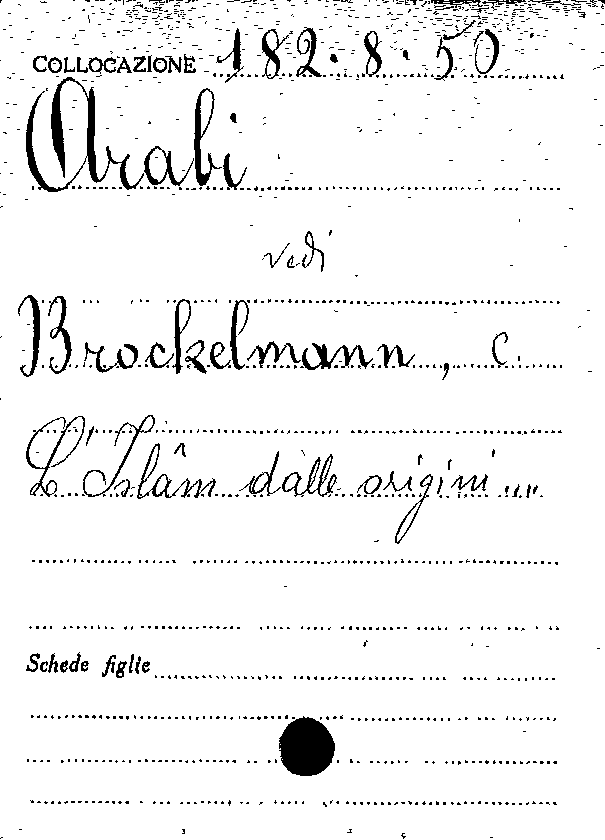 COLLOCAZIONE 182.8.50
Arabi
vedi
Brockelmann, C.
L'Islâm dalle origini....
Schede figlie